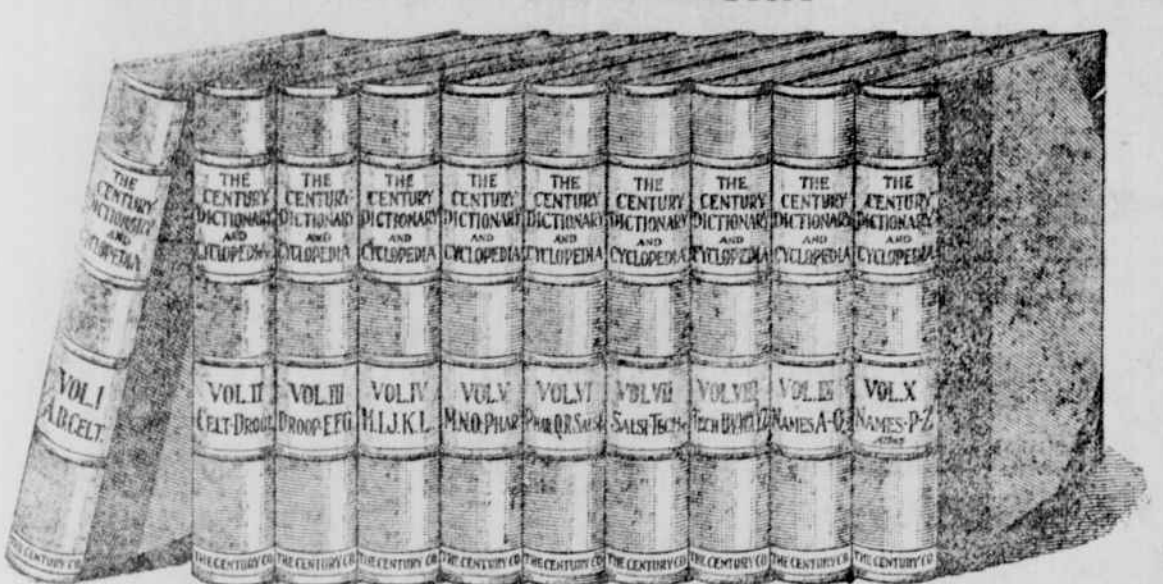 THE
CENTURY
DICTIONARY
AND
CYCLOPEDIA
VOL.I
A.B.CELT.
THE
CENTURY
DICTIONARY
AND
CYCLOPEDIA
VOL.II
CELT-DROOL
THE CENTURY CO.
THE
CENTURY
DICTIONARY
AND
CYCLOPEDIA
VOL.III
DROOP-E.F.G.
THE CENTURY CO.
THE
CENTURY
DICTIONARY
AND
CYCLOPEDIA
VOL.IV
H.I.J.K.L.
THE CENTURY CO.
THE
CENTURY
DICTIONARY
AND
CYCLOPEDIA
VOL.V
M.N.O.PHAR
THE CENTURY CO.
THE
CENTURY
DICTIONARY
AND
CYCLOPEDIA
VOL.VI
PHAR.Q.R.SALSE
THE CENTURY CO.
THE
CENTURY
DICTIONARY
AND
CYCLOPEDIA
VOL.VII
SALSI-TECH
THE CENTURY CO.
THE
CENTURY
DICTIONARY
AND
CYCLOPEDIA
VOL.VIII
TECH
THE CENTURY CO.
THE
CENTURY
DICTIONARY
AND
CYCLOPEDIA
VOL.IX
NAMES A-O
THE CENTURY CO.
THE
CENTURY
DICTIONARY
AND
CYCLOPEDIA
VOL.X
NAMES-P-Z
THE CENTURY CO.
THE CENTURY CO.